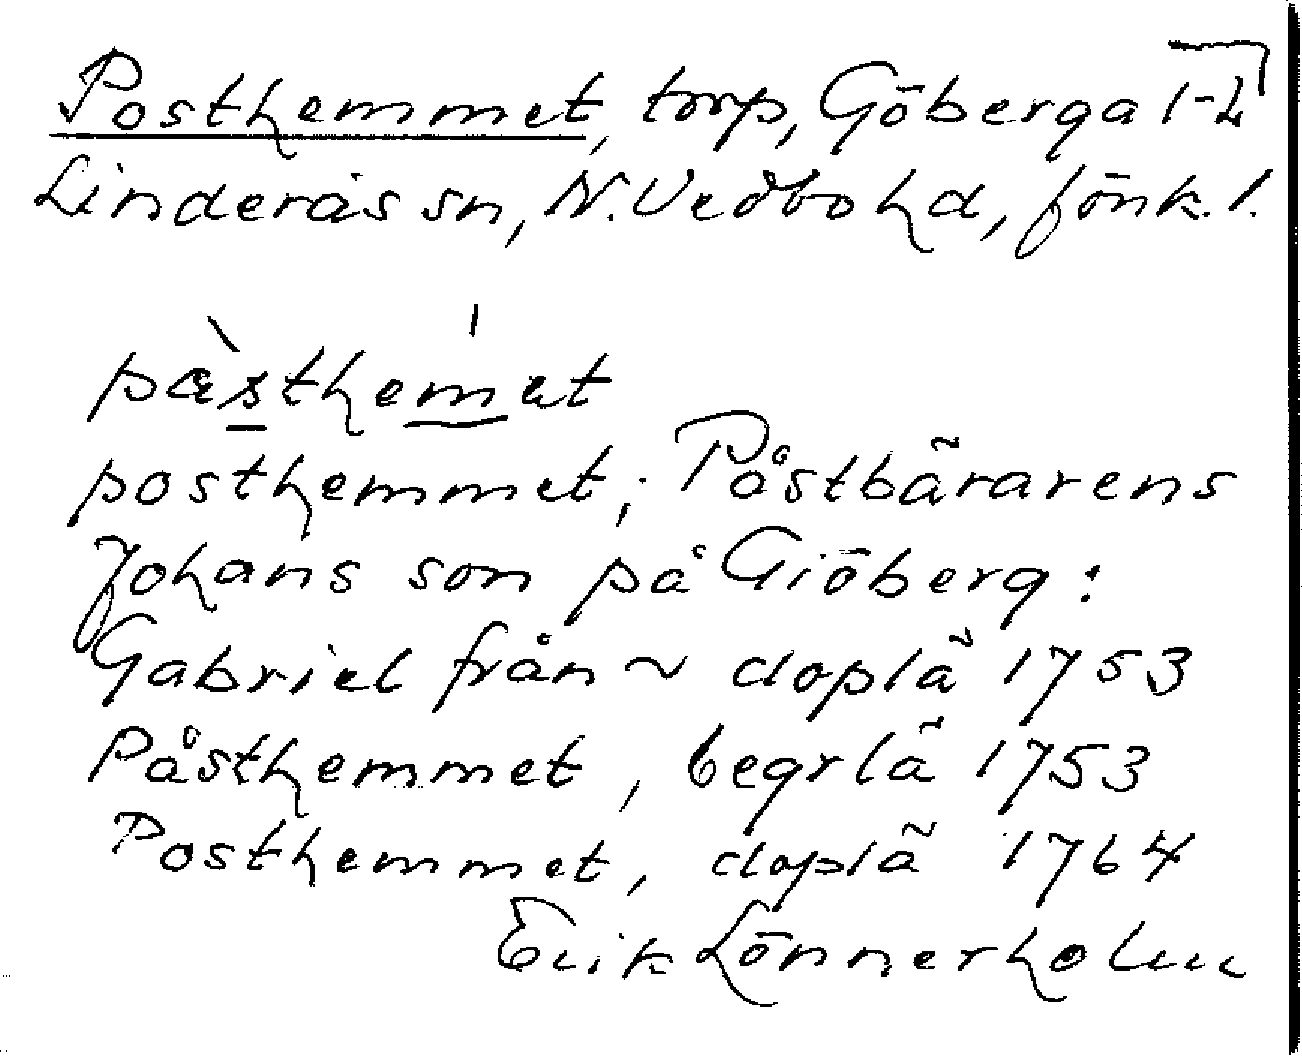 Posthemmet, torp, Göberga 1-4
Linderås sn, N. Vedbo hd, Jönk. l.
pàsthemat
posthemmet; Påstbärarens
Johans son på Giöberg:
Gabriel från ~ doplä 1753
Påsthemmet, begrlä 1753
Posthemmet, doplä 1764
Erik Lönnerholm